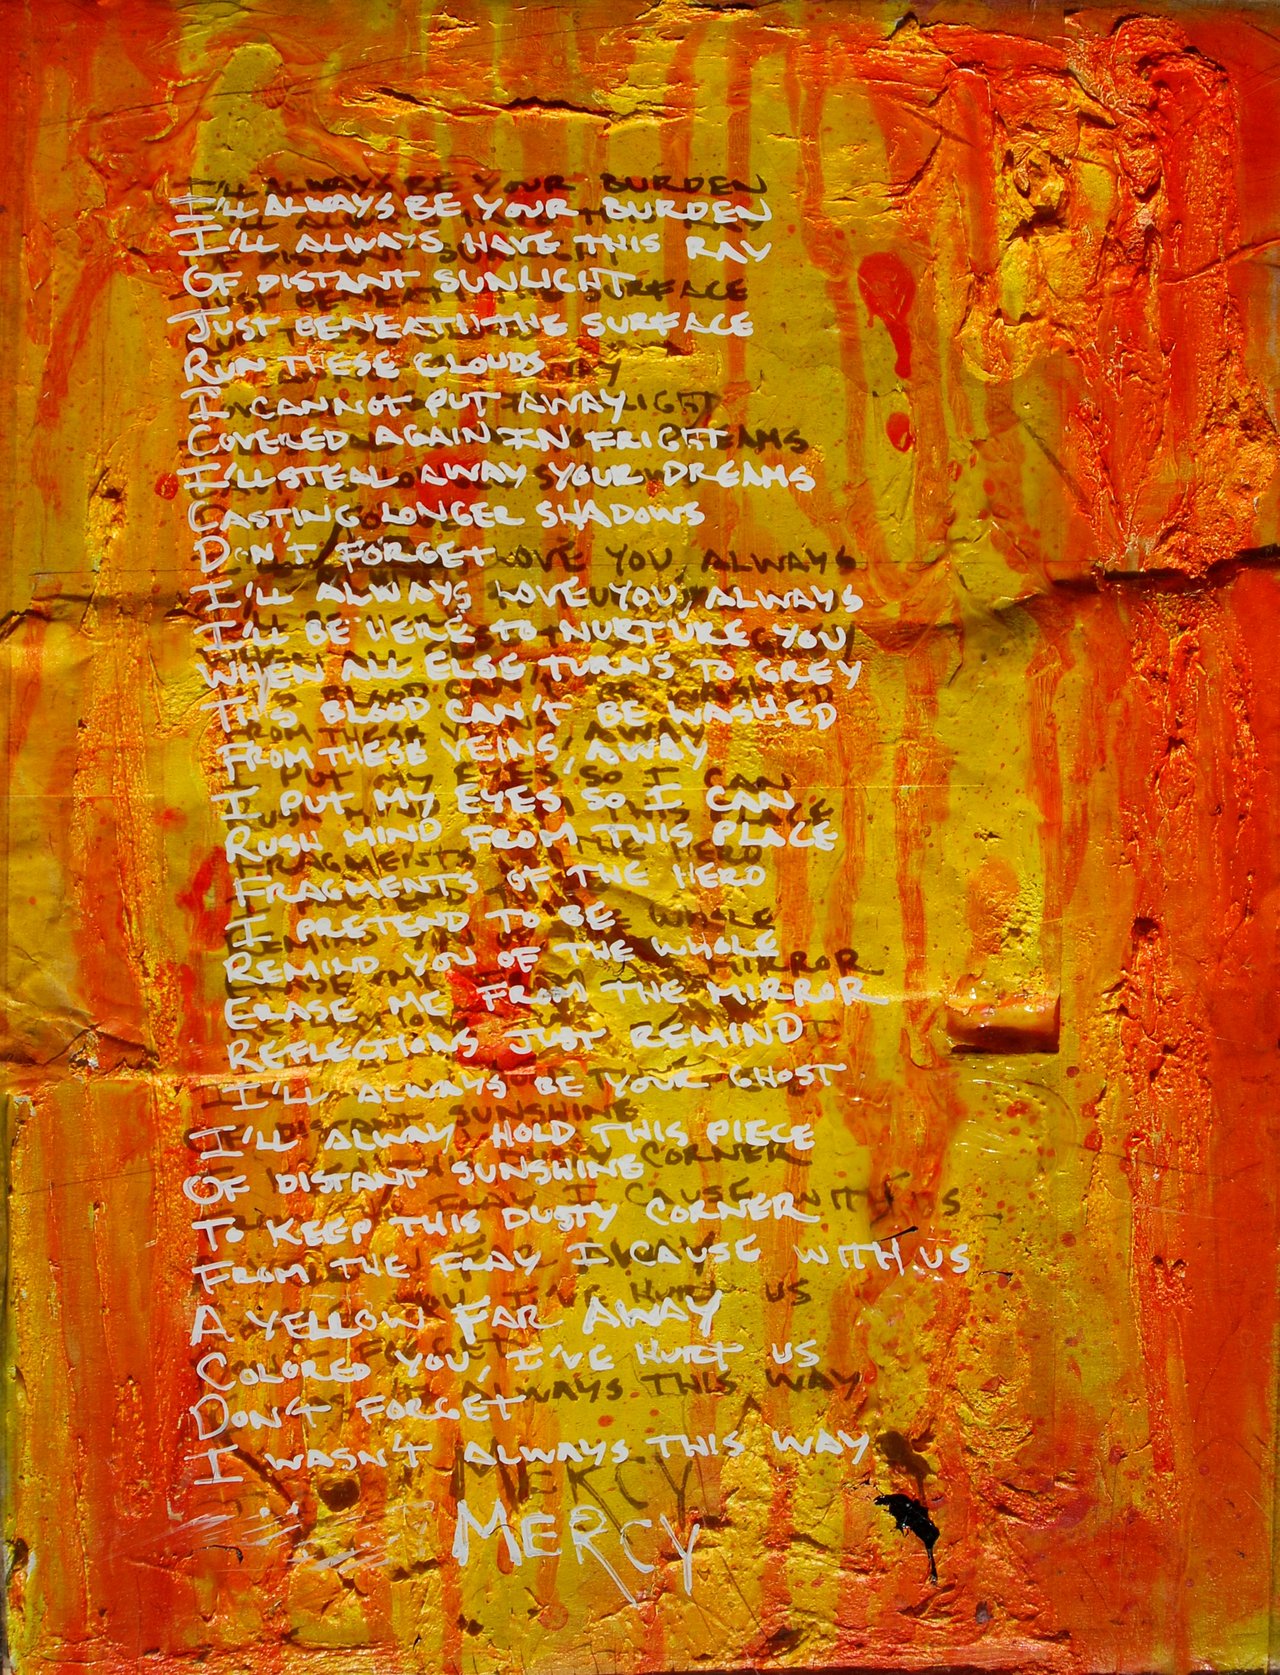 I'LL ALWAYS BE YOUR BURDEN
I'LL ALWAYS HAVE THIS RAY
OF DISTANT SUNLIGHT
JUST BENEATH THE SURFACE
RUN THESE CLOUDS
I CANNOT PUT AWAY
COVERED AGAIN IN FRIGHT
I'LL STEAL AWAY YOUR DREAMS
CASTING LONGER SHADOWS
DON'T FORGET
I'LL ALWAYS LOVE YOU, ALWAYS
I'LL BE HERE TO NURTURE YOU
WHEN ALL ELSE TURNS TO GREY
THIS BLOOD CAN'T BE WASHED
FROM THESE VEINS, AWAY
I PUT MY EYES SO I CAN
RUSH MIND FROM THIS PLACE
FRAGMENTS OF THE HERO
I PRETEND TO BE
REMIND YOU OF THE WHOLE
ERASE ME FROM THE MIRROR
REFLECTIONS JUST REMIND
I'LL ALWAYS BE YOUR GHOST
I'LL ALWAYS HOLD THIS PIECE
OF DISTANT SUNSHINE
TO KEEP THIS DUSTY CORNER
FROM THE FRAY I CAUSE WITH US
A YELLOW FAR AWAY
COLORED YOU, I'VE HURT US
DON'T FORGET
I WASN'T ALWAYS THIS WAY
MERCY